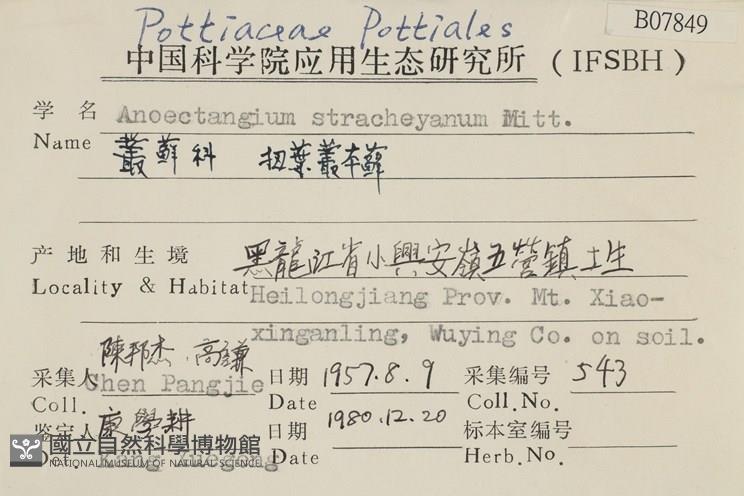 Pottiaceae Pottiales
B07849
中国科学院应用生态研究所 (IFSBH)
学名 Anoectangium stracheyanum Mitt.
Name 叢蘚科 扭葉叢本蘚
产地和生境 黑龍江省小興安嶺五營鎮土生
Locality & Habitat Heilongjiang Prov. Mt. Xiao-
xinganling, Wuying Co. on soil.
陳邦杰、高謙
采集人 Chen Pangjie 日期 1957.8.9 采集编号 543
Coll. Date Coll.No.
鉴定人 康學耕 日期 1980.12.20 标本室编号
Det. Kung Xuegong Date Herb.No.
國立自然科學博物館
NATIONAL MUSEUM OF NATURAL SCIENCE